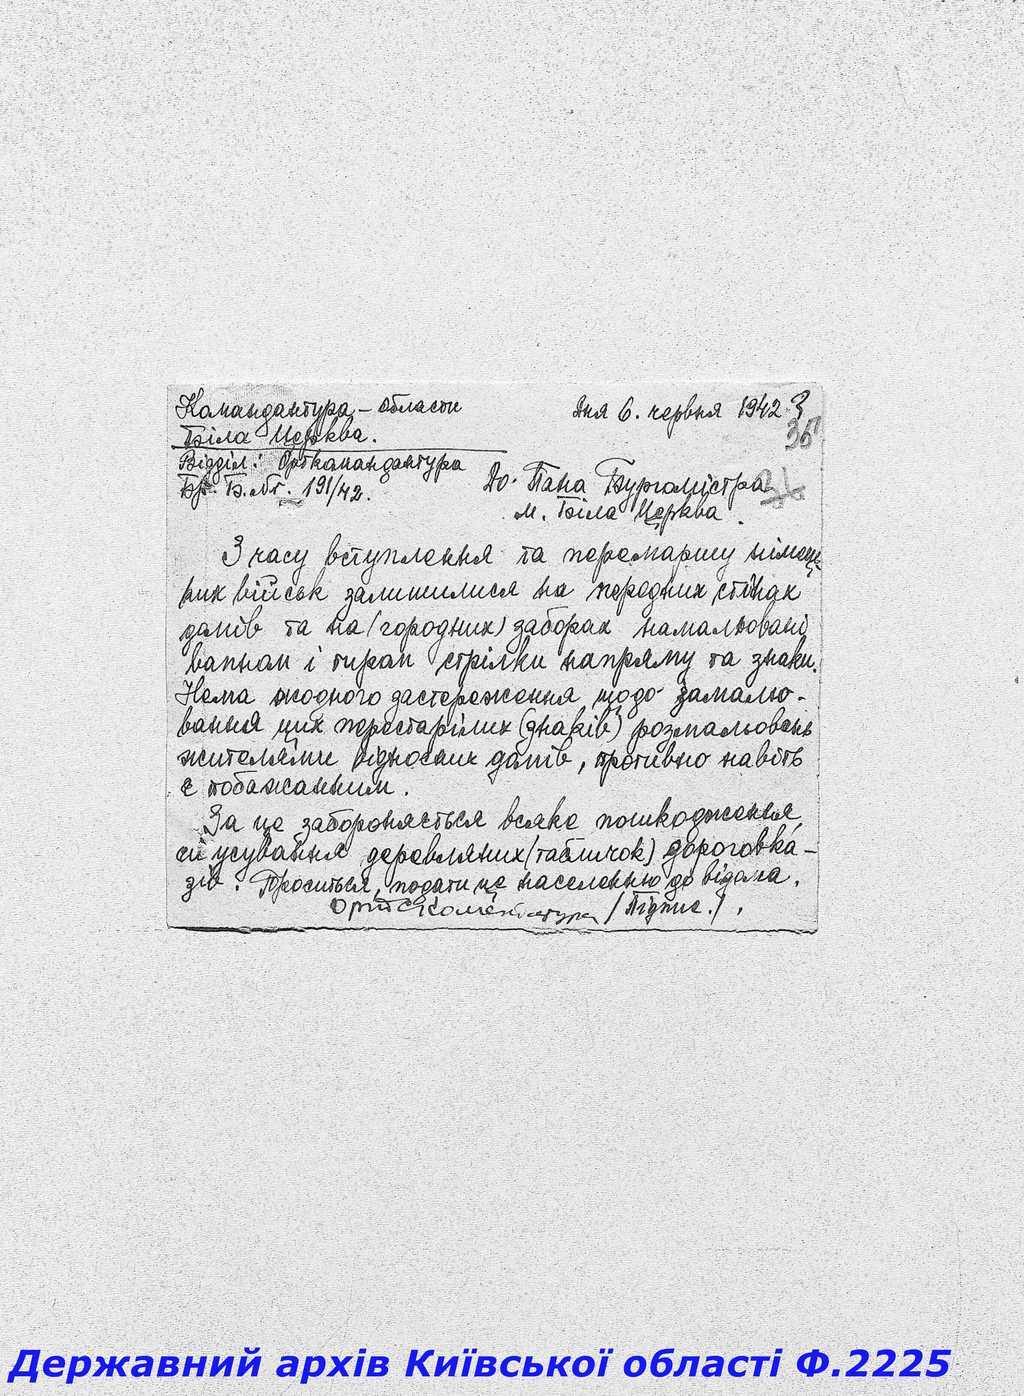 Командантура – области дня 6. червня 1942 З
Біла Церква. 35
Відділ: Орткомандантура
Бр. Б. № 191/42. До Пана Бургомістра 36
м. Біла Церква.
З часу вступлення та перемаршу німець-
ких військ залишилися на передних стінах
домів та на (городних) заборах намальовані
вапном і тиром стрілки напряму та знаки.
Нема жодного застереження щодо замалю-
вання цих перестарілих (знаків) розмальовань
жителями відносних домів, противно навіть
є побажанним.
За це забороняється всяке пошкодження
й усування деревляних (табличок) дороговка-
зів. Проситься, подати це населенню до відома.
/Підпис./.
Державний архів Київської області Ф.2225